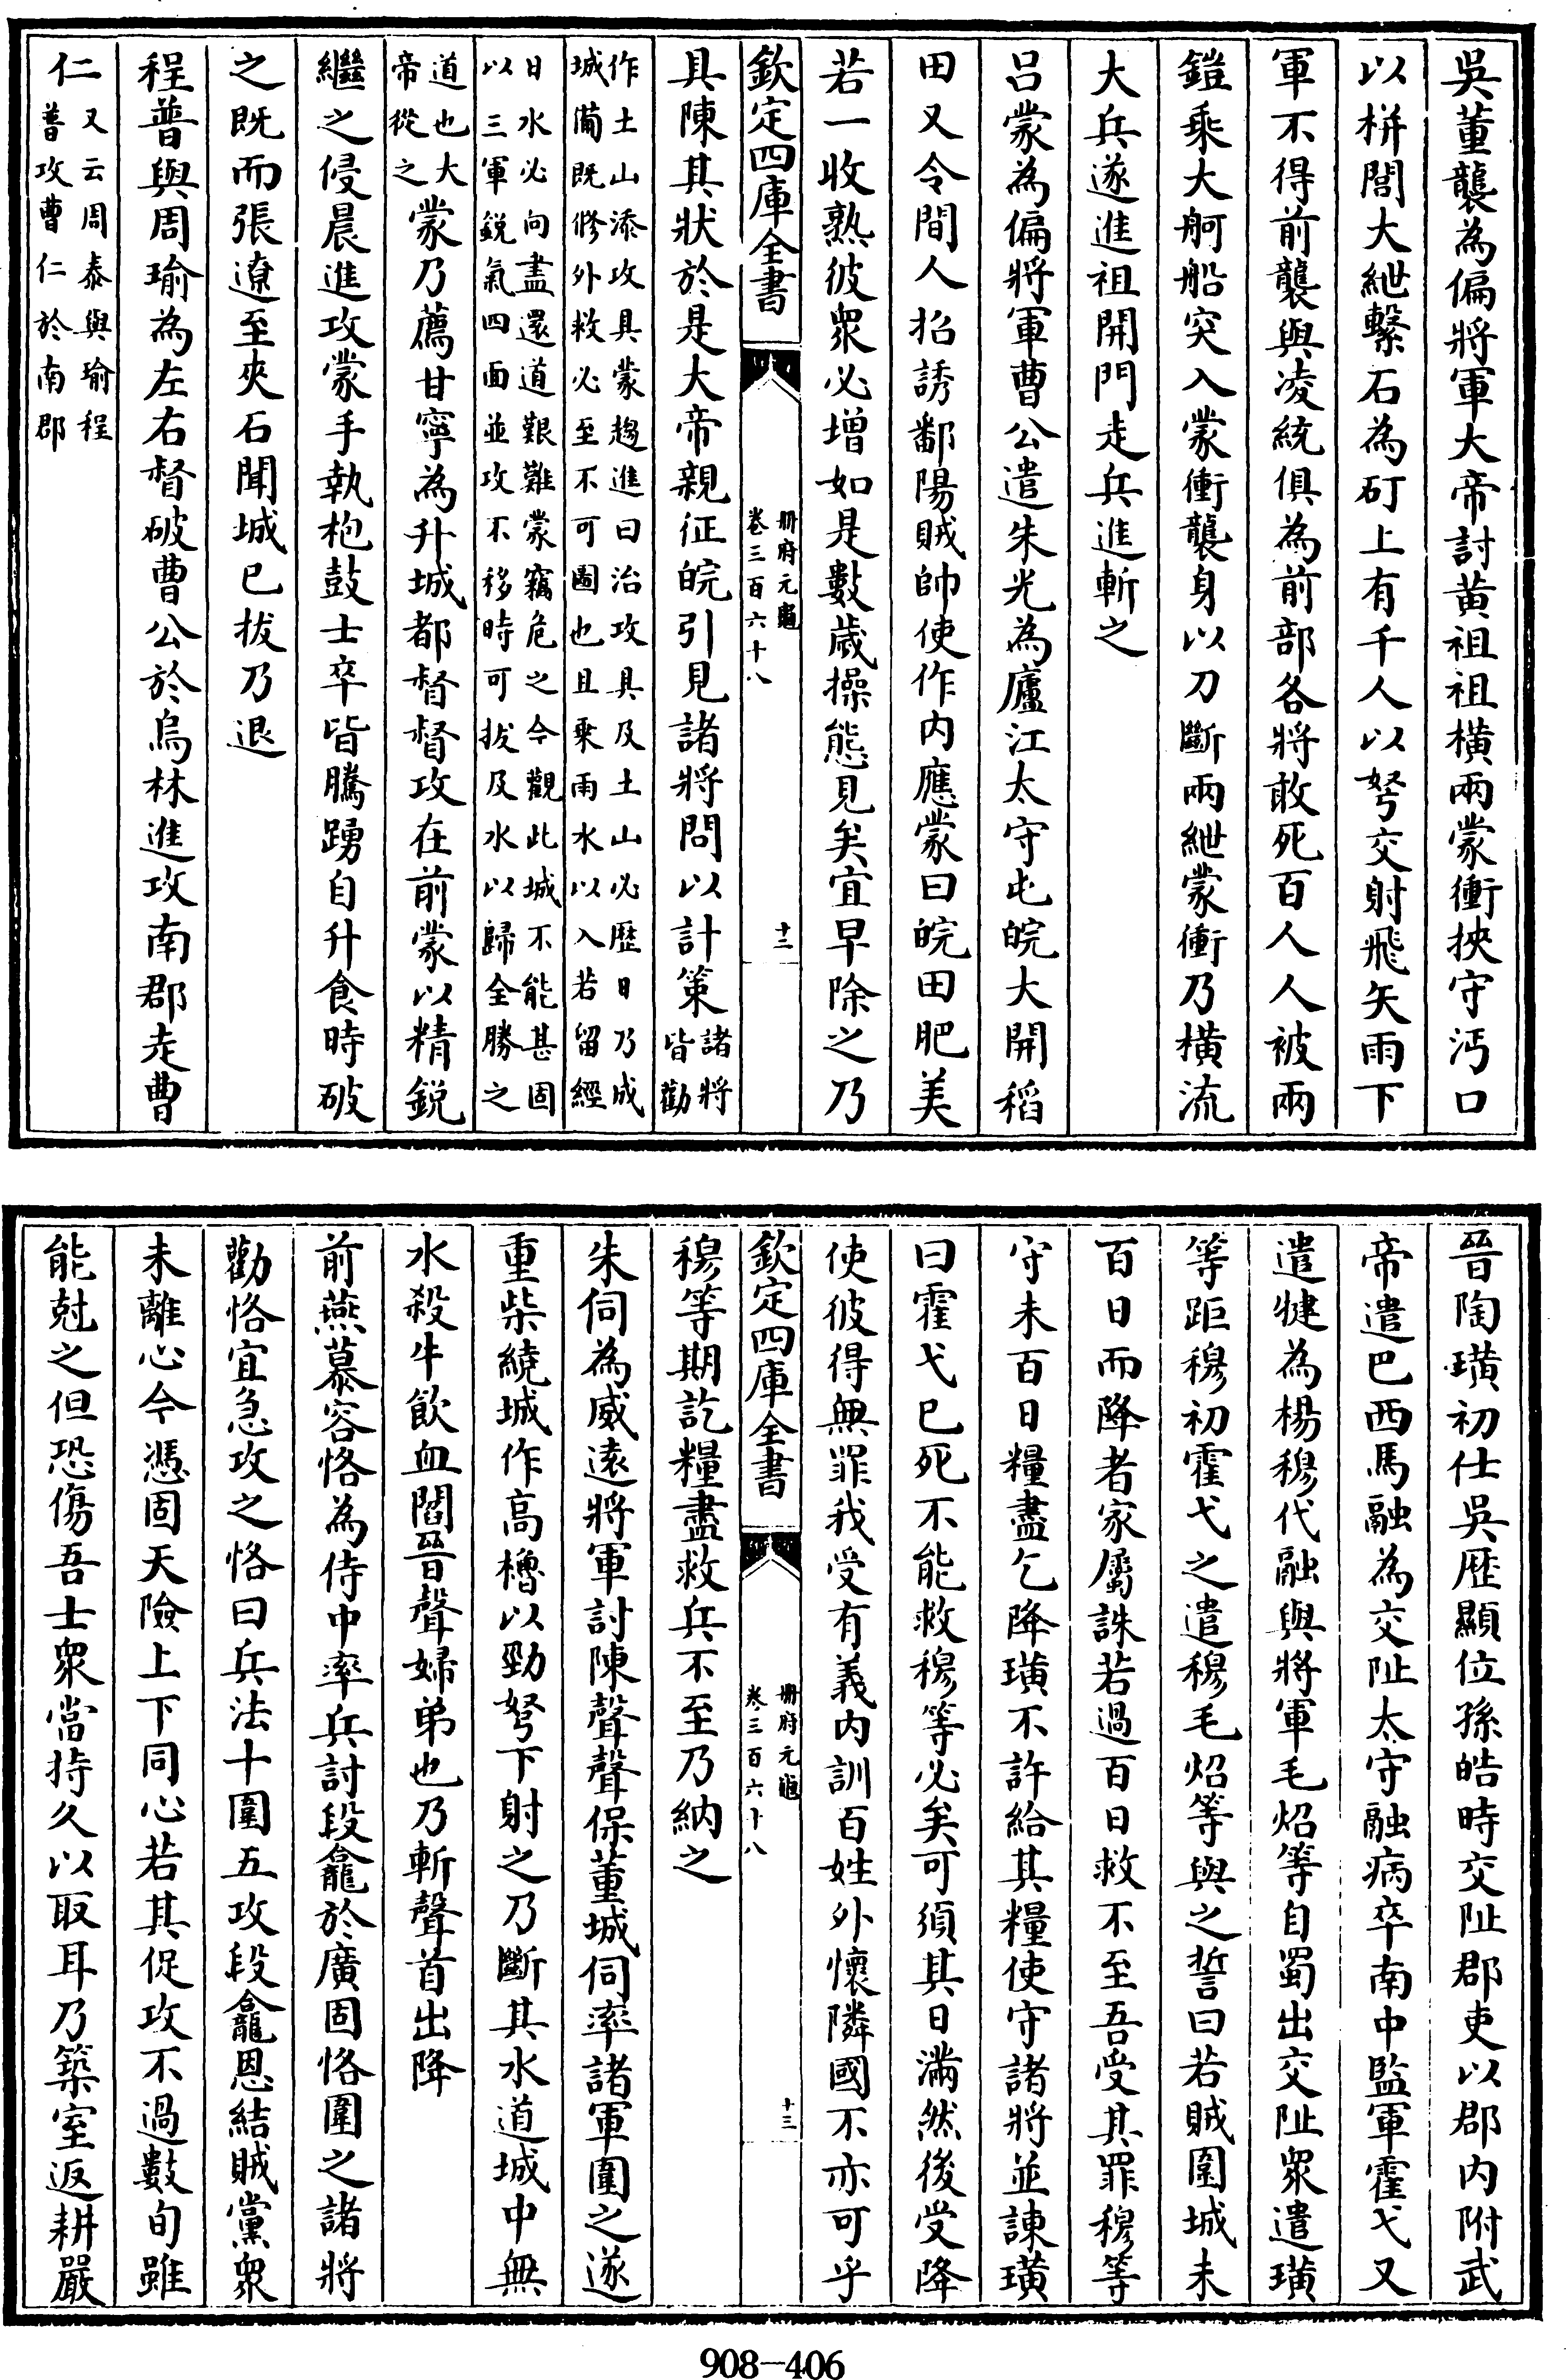 吳董襲為偏將軍大帝討黄祖祖橫兩蒙衝挾守沔口
以栟閭大紲繫石為矴上有千人以弩交射飛矢雨下
軍不得前襲與凌統俱為前部各將敢死百人人被兩
鎧乘大舸船突入蒙衝襲身以刀斷兩紲蒙衝乃橫流
大兵遂進祖開門走兵進斬之
呂蒙為偏將軍曹公遣朱光為廬江太守屯皖大開稻
田又令間人招誘鄱陽賊帥使作内應蒙曰皖田肥美
若一收熟彼衆必增如是數歲操態見矣宜早除之乃
欽定四庫全書
冊府元龜
卷三百六十八
十二
具陳其狀於是大帝親征皖引見諸將問以計策諸將皆勸
作土山添攻具蒙趨進曰治攻具及土山必歷日乃成
城備既修外救必至不可圖也且乗雨水以入若留經
日水必向盡還道艱難蒙竊危之今觀此城不能甚固
以三軍銳氣四面並攻不移時可拔及水以歸全勝之
道也大帝從之蒙乃薦甘寧為升城都督督攻在前蒙以精銳
繼之侵晨進攻蒙手執枹鼓士卒皆騰踴自升食時破
之既而張遼至夾石聞城已拔乃退
程普與周瑜為左右督破曹公於烏林進攻南郡走曹
仁又云周泰與瑜程普攻曹仁於南郡
晉陶璜初仕吳歷顯位孫皓時交阯郡吏以郡内附武
帝遣巴西馬融為交阯太守融病卒南中監軍霍弋又
遣犍為楊穆代融與將軍毛炤等自蜀出交阯衆遣璜
等距穆初霍弋之遣穆毛炤等與之誓曰若賊圍城未
百日而降者家屬誅若過百日救不至吾受其罪穆等
守未百日糧盡乞降璜不許給其糧使守諸將並諫璜
曰霍弋已死不能救穆等必矣可須其日滿然後受降
使彼得無罪我受有義内訓百姓外懷隣國不亦可乎
欽定四庫全書
冊府元龜
卷三百六十八
十三
穆等期訖糧盡救兵不至乃納之
朱伺為威遠將軍討陳聲聲保董城伺率諸軍圍之遂
重柴繞城作高櫓以勁弩下射之乃斷其水道城中無
水殺牛飲血閻晉聲婦弟也乃斬聲首出降
前燕慕容恪為侍中率兵討段龕於廣固恪圍之諸將
勸恪宜急攻之恪曰兵法十圍五攻段龕恩結賊黨衆
未離心今憑固天險上下同心若其促攻不過數旬雖
能尅之但恐傷吾士衆當持久以取耳乃築室返耕嚴
908-406